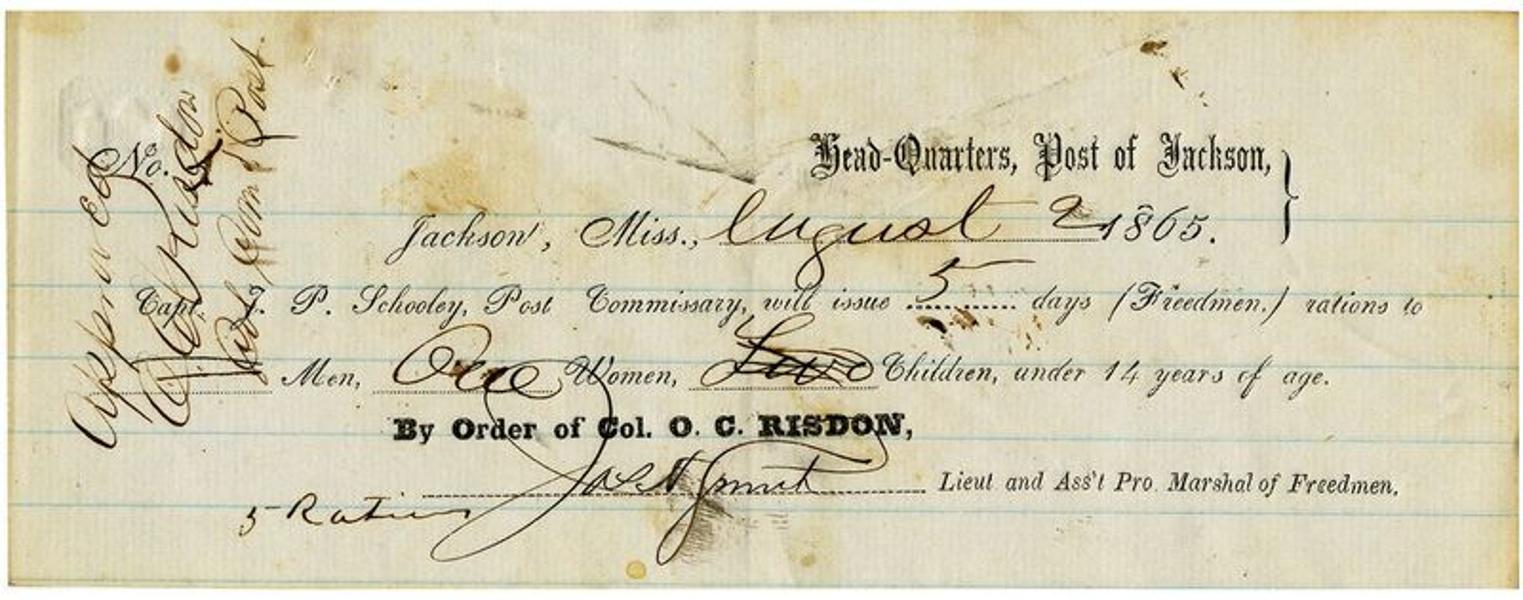 Approved
O. C. Risdon
Col. Com'd Post.
No.
Head-Quarters, Post of Jackson,
Jackson, Miss., August 2 1865.
Capt. J. P. Schooley, Post Commissary, will issue 5 days (Freedmen.) rations to
Men, One Women, Two Children, under 14 years of age.
By Order of Col. O. C. RISDON,
Lieut and Ass't Pro. Marshal of Freedmen.
5 Rations